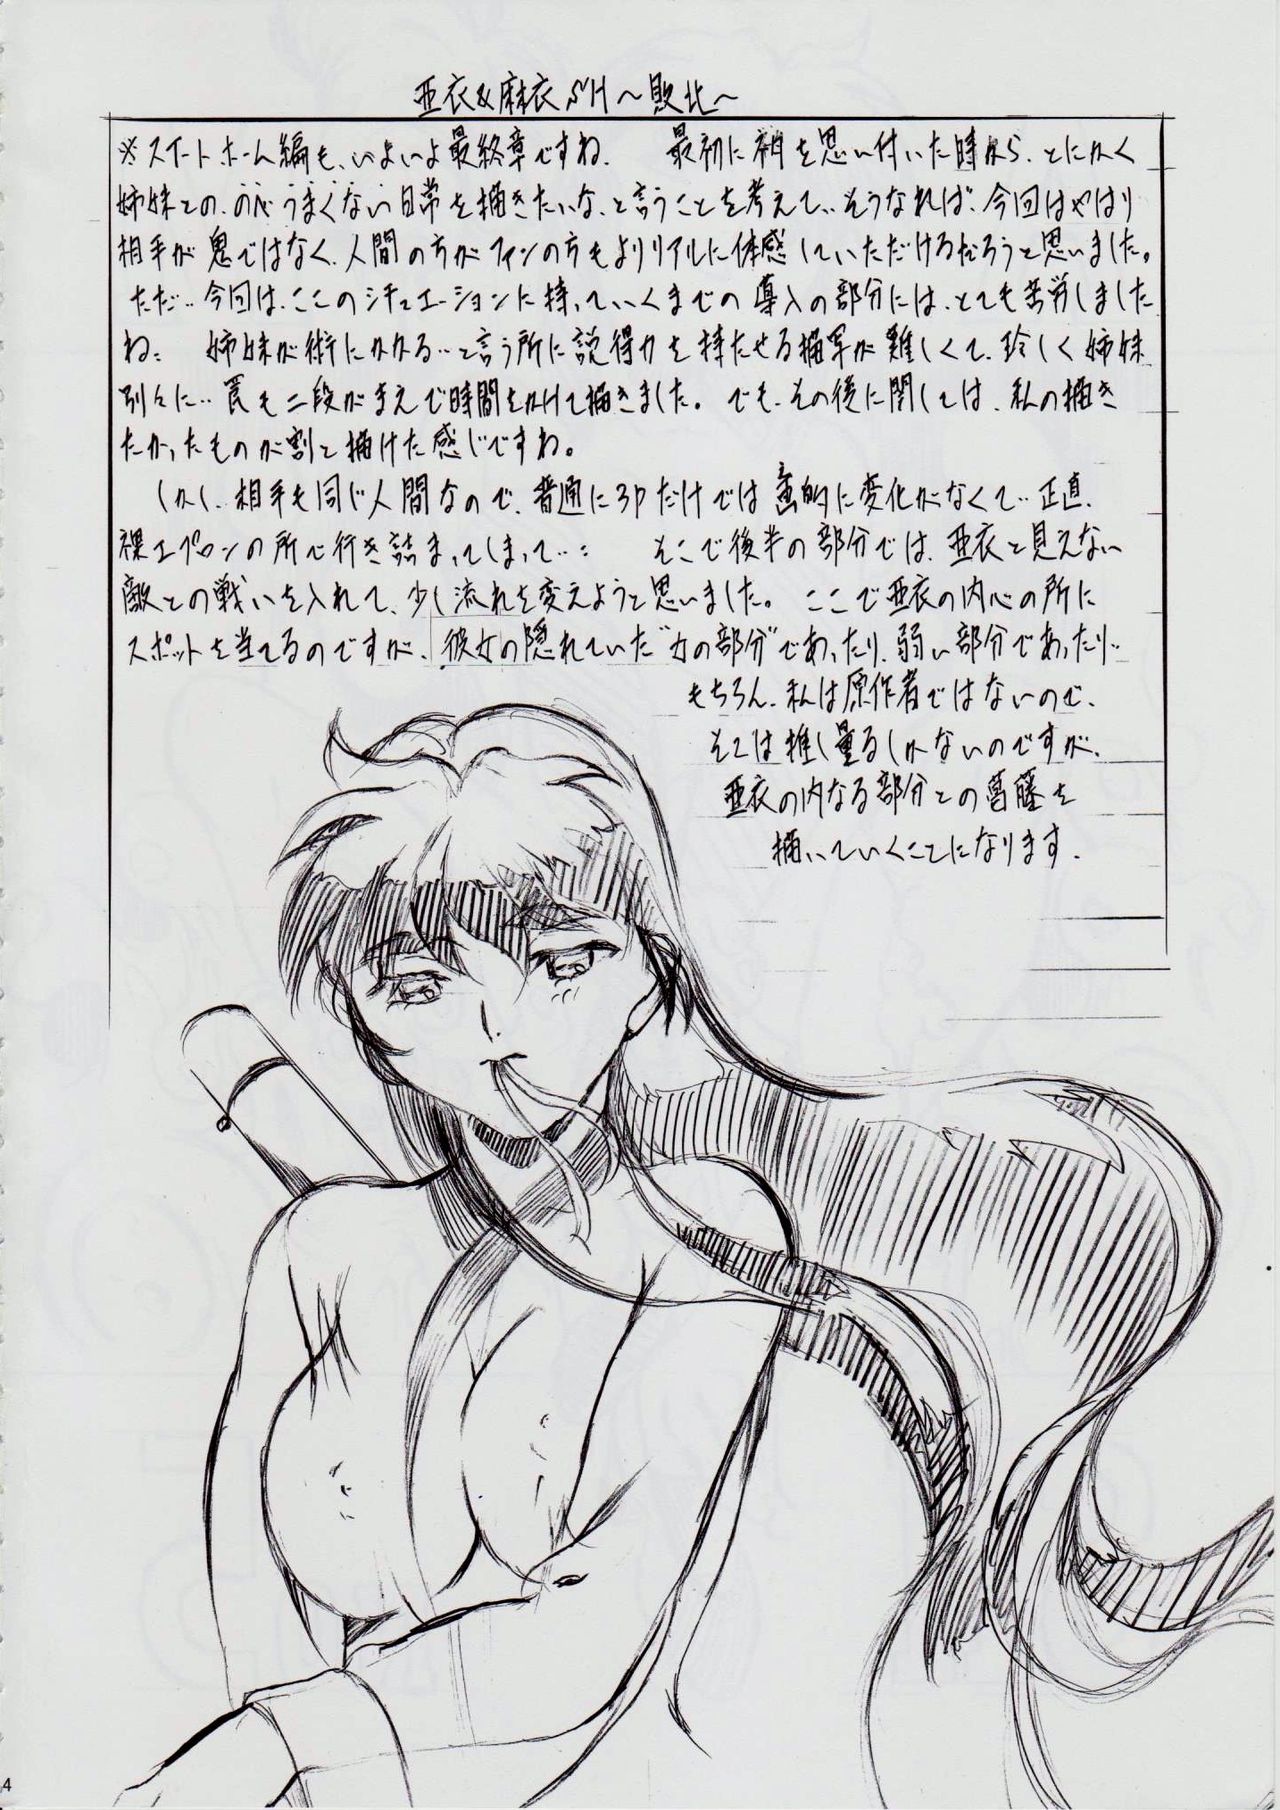 亜衣&麻衣SH～敗北～
※スイートホーム編も、いよいよ最終章ですね. 最初に神を思い付いた時から、とにかく
姉妹との、のどうまくない日常を描きたいな、と言うことを考えて‥そうなれば、今回はやはり
相手が鬼ではなく、人間の方がファンの方もよりリアルに体感していただけるだろうと思いました。
ただ‥今回は、ここのシチュエーションに持っていくまでの導入の部分には、とても苦労しました
ね: 姉妹が術にかかる‥と言う所に説得力を持たせる描写が難しくて、珍しく姉妹
別々に‥罠も二段がまえで時間をかけて描きました。でも、その後に関しては、私の描き
たかったものが割と描けた感じですね。
しかし、相手も同じ人間なので、普通に3Pだけでは画的に変化がなくて‥正直、
裸エプロンの所で行き詰まってしまって‥: そこで後半の部分では、亜衣と見えない
敵との戦いを入れて、少し流れを変えようと思いました。ここで亜衣の内心の所に
スポットを当てるのですが、彼女の隠れていた"女の部分"であったり、弱い部分であったり‥
もちろん、私は原作者ではないので、
そこは推し量るしかないのですが、
亜衣の内なる部分との葛藤を
描いていくことになります.
4